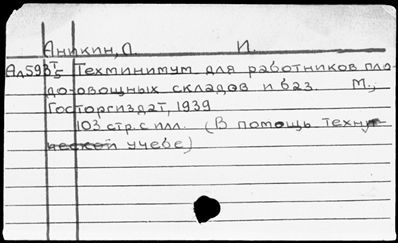 Аникин, Л. И.
Ал593 Т/5 Техминимум для работников пло-
доовощных складов и баз. М.,
Госторгиздат, 1939
103 стр. с илл. (В помощь техни-
ческой учебе)